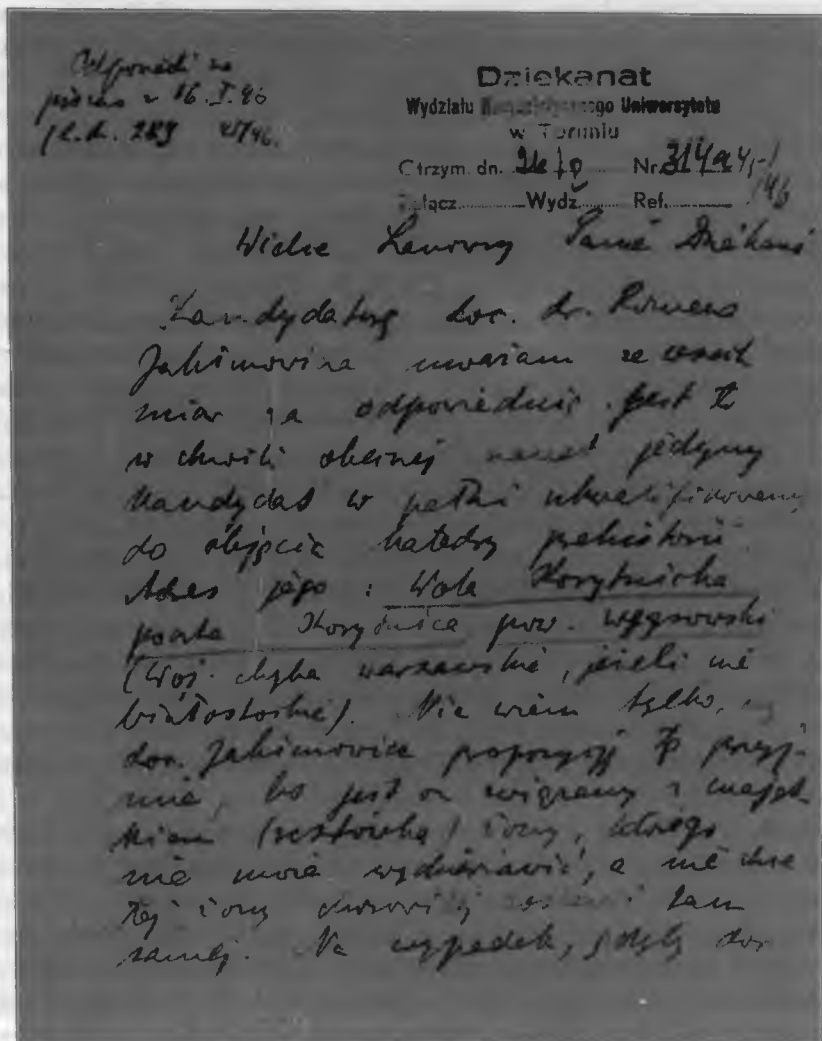 Odpowiedź na
pismo z 16.I.46
l.d. 289 45/46.
Dziekanat
Wydziału Humanistycznego Uniwersytetu
w Toruniu
Otrzym. dn. Nr 314a 45/46
Załącz. Wydz. Ref.
Wielce Szanowny Panie Dziekanie
Kandydaturę doc. dr. Romana
Jakimowicza uważam ze wszech
miar za odpowiednią. Jest to
w chwili obecnej nawet jedyny
kandydat w pełni ukwalifikowany
do objęcia katedry prehistorii.
Adres jego: Wola Korytnicka
poczta Korytnica pow. węgrowski
(woj. chyba warszawskie, jeżeli nie
białostockie). Nie wiem tylko, czy
doc. Jakimowicz propozycję tę przyj-
mie, bo jest on związany z mająt-
kiem (resztówką) żony, którego
nie może wydzierżawić, a nie chce
tej żony zostawić tam
samej. Na wypadek, gdyby doc.